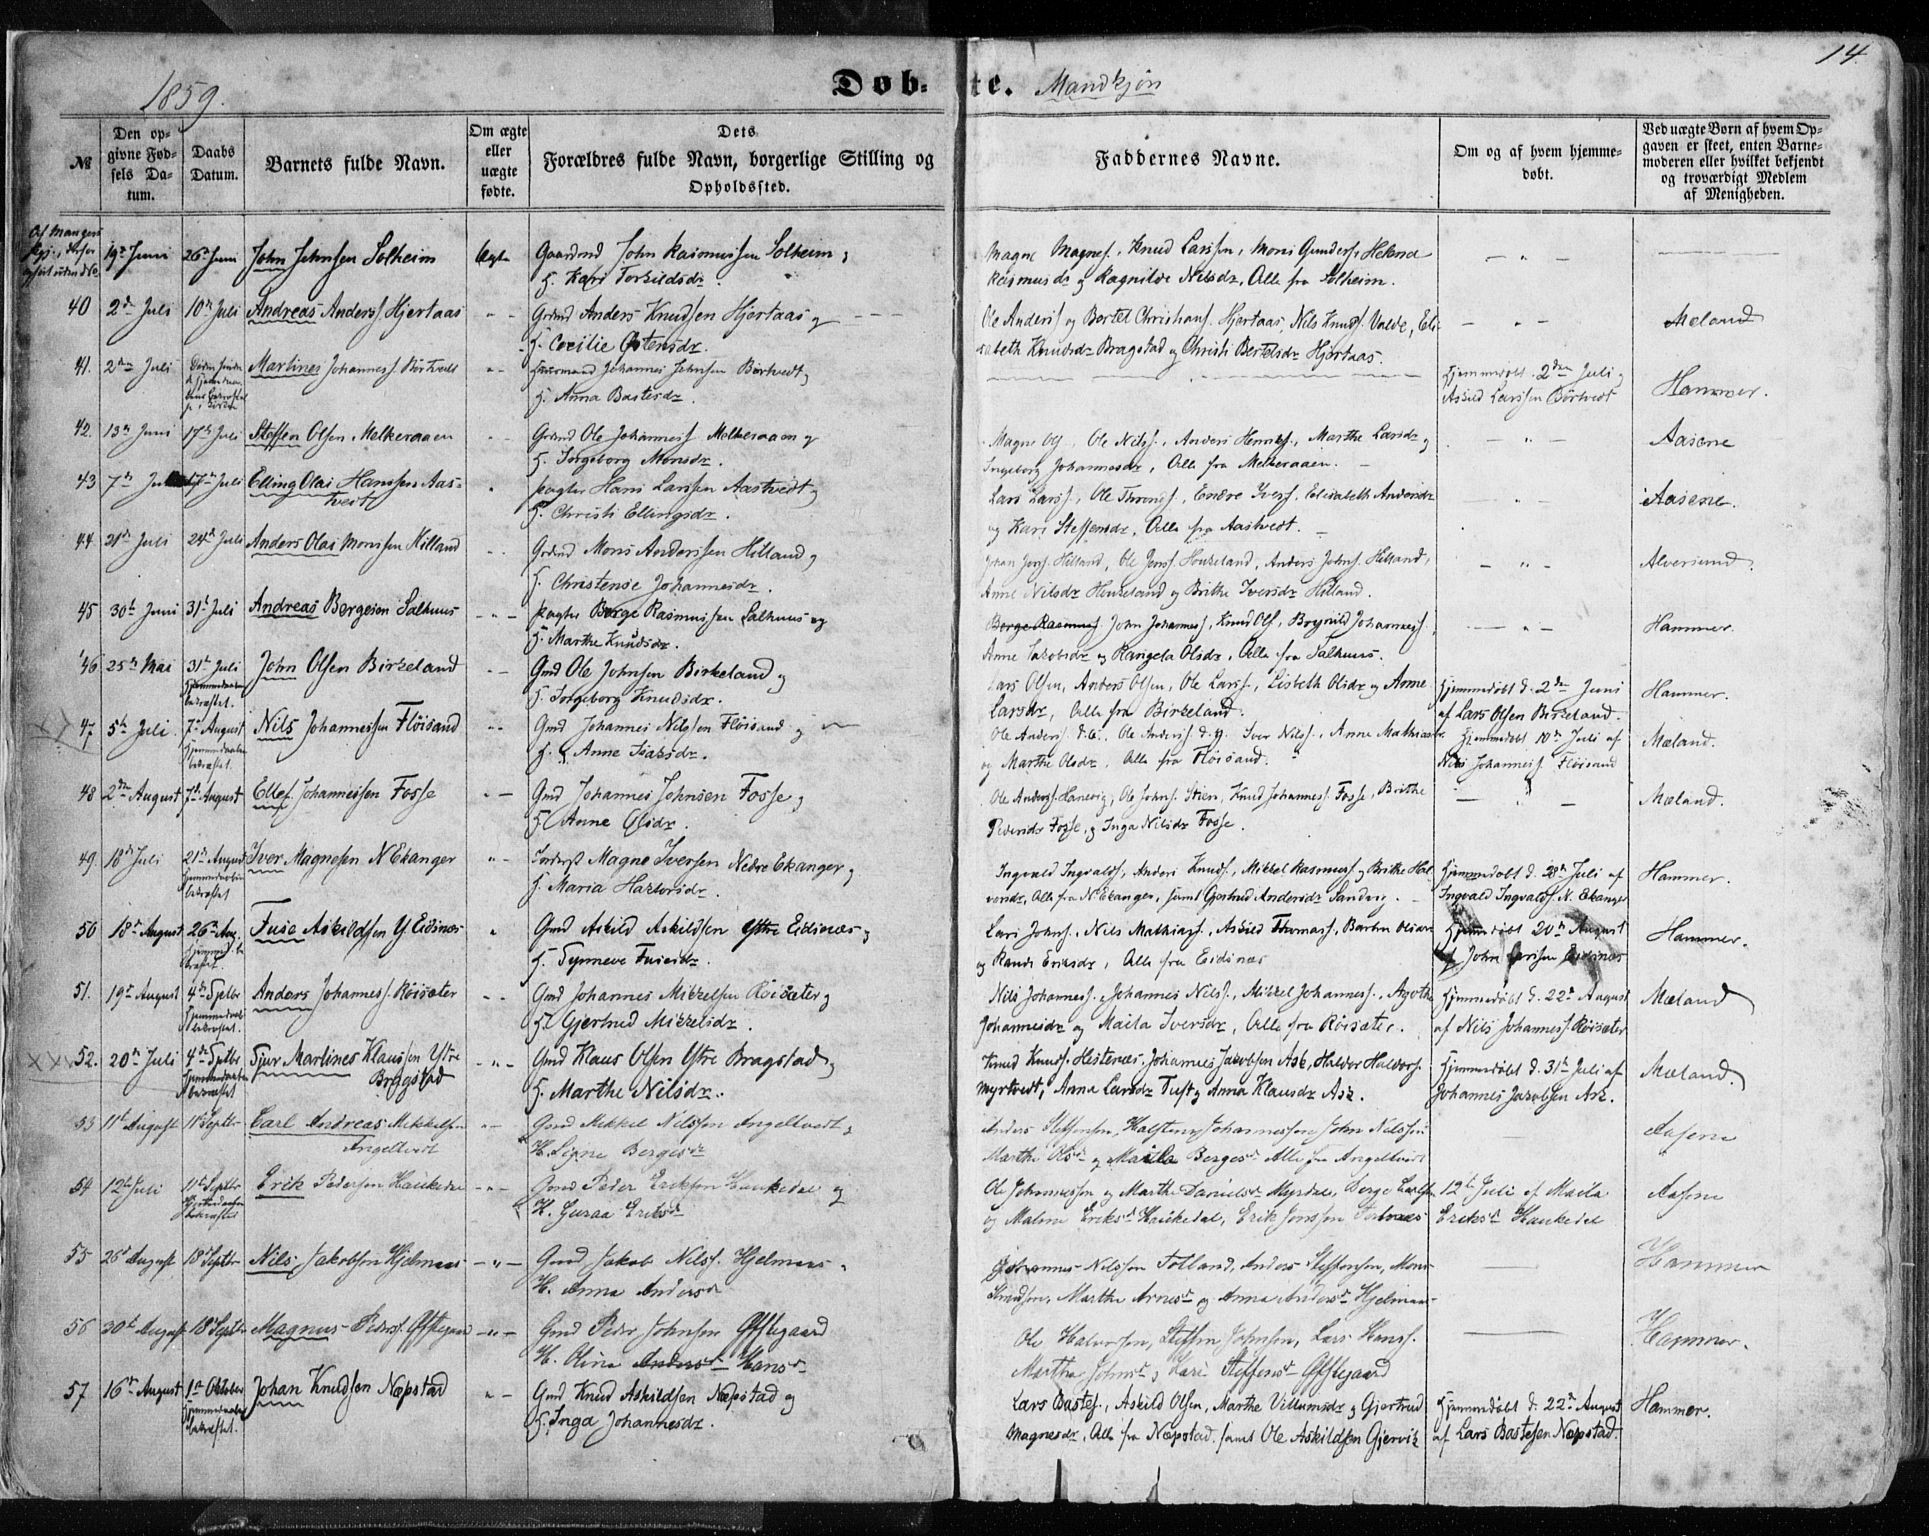 14.
1859.
Døb-
te. Mandkjøn
№
Den op-
givne Fød-
sels Da-
tum.
Daabs
Datum.
Barnets fulde Navn.
Om ægte
eller
uægte
fødte.
Dets
Forældres fulde Navn, borgerlige Stilling og
Opholdssted.
Faddernes Navne.
Om og af hvem hjemme-
døbt.
Ved uægte Børn af hvem Op-
gaven er skeet, enten Barne-
moderen eller hvilket bekjendt
og troværdigt Medlem
af Menigheden.
19de Juni 26de Juni John Johnsen Solheim Ægte Gaardmd John Rasmussen Solheim,
H. Kari Torkildsdr.
Magne Magness. Knud Larssen, Mons Gunders. Helene
Rasmusdr og Ragnilde Nilsdr, Alle fra Solheim.
40 2de Juli 10de Juli Andreas Anderss. Hjertaas Grdmd Anders Knudsen Hjertaas og
H. Cecilie Ostensdr.
Ole Anderss og Bertel Christians. Hjertaas, Nils Knuds. Valde, Eli-
sabeth Knudsdr Bragstad og Christi Bertelsdr Hjertaas.
Meland
41. 2den Juli Martines Johanness. Børtvedt Huusmand Johannes Johnsen Børtvedt,
H. Anna Bastesdr.
Hjemmedøbt 2den Juli,
Askild Larssen Børtvedt
Hammer.
42. 13de Juni 17de Juli Steffen Olsen Melkeraaen Grdmd Ole Johanness. Melkeraaen og
H. Ingeborg Monsdr.
Magne Ols, Ole Nilss., Anders Henriks., Marthe Larsdr og
Ingeborg Johannesdr, Alle fra Melkeraaen.
Aasene
43 7de 17de Juli Elling Olai Hanssen Aas-
tvedt
Pagter Hans Larssen Aastvedt,
H. Christi Ellingsdr.
Lars Larss., Ole Throngs., Endre Ivers. Elisabeth Andersdr
og Kari Steffensdr, Alle fra Aastvedt.
Aasene.
44. 21de Juli 24de Juli Anders Olai Monssen Hilland Grdmd Mons Anderssen Hilland,
H. Christense Johannesdr.
Johan Jons. Hilland, Ole Jenss. Houkeland, Anders Johns. Hilland,
Anne Nilsdr Houkeland og Brithe Iversdr Hilland.
Alversund.
45 30te Juni 31te Juli Andreas Bergesen Salhuus Pagter Berge Rasmussen Salhuus og
H. Marthe Knudsdr.
Berge Rasmuss, John Johanness, Knud Ols, Brynild Johanness,
Anne Jacobsdr og Rangela Olsdr, Alle fra Salhuus.
Hammer.
46 25de Mai 31te Juli
Hjemmedaaben
bekræftet.
John Olsen Birkeland Gmd Ole Johnsen Birkeland og
H. Ingeborg Knudsdr.
Lars Olsen, Anders Olsen, Ole Larss., Lisbeth Olsdr og Anne
Larsdr, Alle fra Birkeland.
Hjemmedøbt d. 2den Juni
af Lars Olsen Birkeland.
Hammer.
47 5te Juli 7de August
Hjemmedaaben
bekræftet.
Nils Johannessen Fløisand Gmd Johannes Nilssen Fløisand og
H. Anne Isaksdr.
Ole Anderss d. E., Ole Anderss d. Y. Iver Nilss., Anne Mathiasdr
og Marthe Olsdr, Alle fra Fløisand.
Hjemmedøbt 10de Juli af
Nils Johanness. Fløisand
Meland.
48 2den August 7de August Ellef Johannessen Fosse Gmd Johannes Johnsen Fosse,
H. Anne Olsdr.
Ole Anderss. Hanevig, Ole Johns. Stien, Knud Johanness. Fosse, Brithe
Pedersdr Fosse, og Inga Nilsdr Fosse.
Meland.
49. 18de Juli 21de August
Hjemmedaaben
bekræftet
Iver Magnesen N Ekanger Inderst Magne Iversen Nedre Ekanger,
H. Maria Halvorsdr.
Ingvald Ingvalds., Anders Knuds., Mikkel Rasmuss og Brithe Hal-
vorsdr, Alle fra N Ekanger, samt Gjertrud Andersdr Sandvig.
Hjemmedøbt d. 28de Juli af
Ingvald Ingvalds. N. Ekanger
Hammer.
50 18de August 26de Aug. Fuse Askildsen Y. Eidsnes Gmd Askild Askildsen Ystre Eidsnes,
H. Synneve Fusesdr.
Lars Johns., Nils Mathiass., Askild Thomass., Barbra Olsdr
og Randi Eriksdr, Alle fra Eidsnæs
Hjemmedøbt 20de August
af John Larsen Eidsnæs
Hammer.
51. 19de August 4de Septbr
Hjemmedaab
bekræftet.
Anders Johanness. Røisæter Gmd Johannes Mikkelsen Røisæter,
H. Gjertrud Mikkelsdr.
Nils Johanness., Johannes Nilss., Mikkel Johanness., Agothe
Johannesdr og Maila Iversdr, Alle fra Røisæter.
Hjemmedøbt d. 22de August
af Nils Johanness. Røisæter
Meland
52. 20de Juli 4de Septbr
Hjemmedaaben
bekræftet
Sjur Martines Klaussen Ystre
Bragstad
Gmd Klaus Olsen Ystre Bragstad,
H. Marthe Nilsdr.
Knud Knuds. Hestenæs, Johannes Jacobsen Ask, Haldor Haldors.
Myrtvedt, Anna Larsdr Tuft og Anna Klausdr Ask.
Hjemmedøbt d. 31te Juli af
Johannes Jacobsen Ask.
Meland.
53 11te August 11te Septbr Carl Andreas Mikkelsen
Angeltvedt
Gmd Mikkel Nilssen Angeltvedt,
H. Signe Bergesdr
Anders Steffensen, Halsten Johannessen, John Nilssen
Marthe Olsdr og Maila Bergesdr Alle fra Angeltvedt
Aasene
54 12te Juli 11te Septbr Erik Pedersen Haukedal Gmd Peder Eriksen Haukedal og
H. Guraa Eriksdr
Ole Johannessen og Marthe Danielsdr Myrdal, Berge
og Malene Eriksdr Haukedal, Erik Jonssen
12te Juli af Maila
Eriksdr Haukedal
Aasene
55 26de August 18 Septbr Nils Jakobsen Hjelmaas Gmd Jakob Nilss. Hjelmaas,
H. Anna Andersdr
Johannes Nilssen Totland, Anders Steffensen, Mons
Knudsen, Marthe Arnesdr og Anna Andersdr Hjelmaas
Hammer
56 30te August 18 Septbr Magnus Peders. Ofstegaard Gmd Peder Johnsen Ofstegaard
H. Olina Andersdr Hansdr
Ole Halvorsen, Steffen Johnsen, Lars Hanss.
Martha Johnsdr, Kari Steffensdr Ofstegaard
Hammer.
57 16de August 1ste Oktober
Hjemmedaaben
bekræftet.
Johan Knudsen Næpstad Gmd Knud Askildsen Næpstad og
H. Inga Johannesdr.
Lars Bastes., Askild Olsen, Marthe Villumsdr og Gjertrud
Magnesdr, Alle fra Næpstad samt Ole Askildsen Gjervik
Hjemmedøbt d. 22de August
af Lars Bastesen Næpstad.
Hammer.